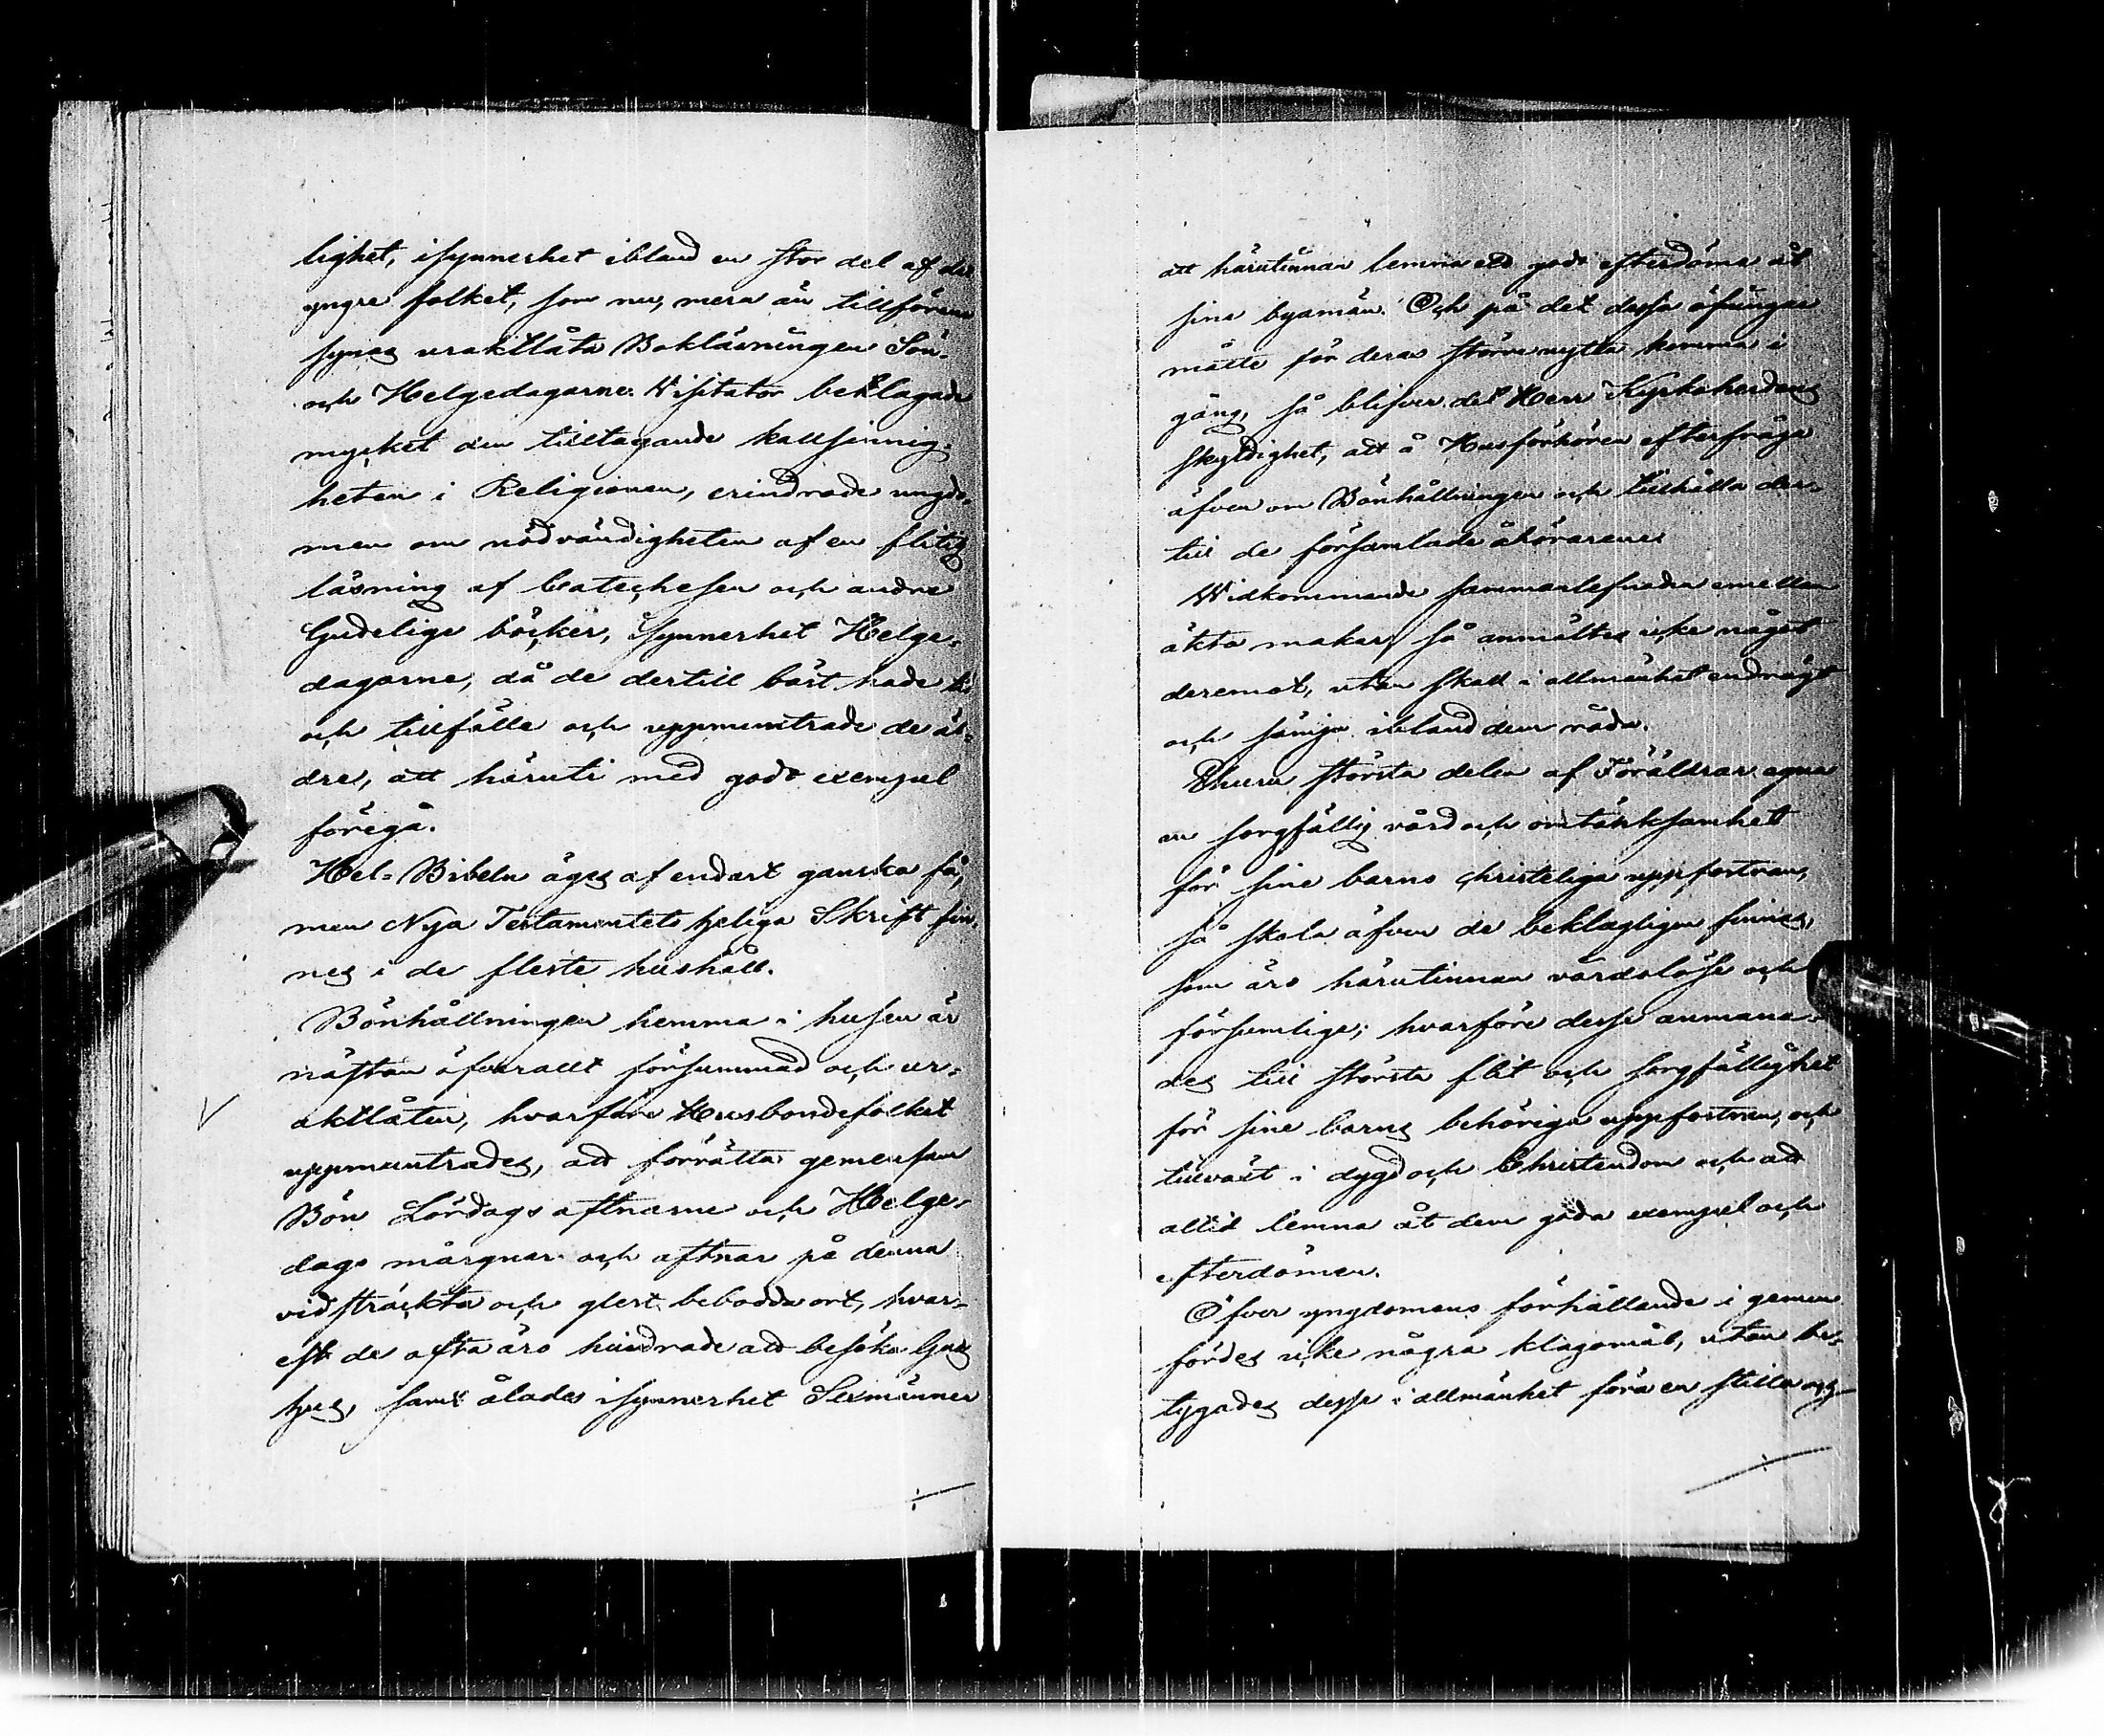 lighet, isynnerhet ibland en stor del af det
yngre folket, som nu, mera än tillförene
synes uraktlåta Bokläsningen Sön-
och Helgedagarne. Visitator beklagade
mycket den tilltagande kallsinnig-
heten i Religionen, erindrade ungdo-
men om nödvändigheten af en flitig
läsning af Catechesen och andre
Gudelige böcker, isynnerhet Helge-
dagarne, då de dertill bäst hade tid
och tillfälle och uppmuntrade de äl-
dre, att häruti med godt exempel
föregå.
Hel-Bibeln äges af endast ganska få,
men Nya Testamentets heliga Skrift fin-
nes i de fleste hushåll.
Bönhållningen hemma i husen är
nästan öfverallt försummad och ur-
aktlåten, hvarföre Husbondefolket
uppmuntrades, att förrätta gemensam
Bön Lördags aftnarne och Helge-
dags mårgnar och aftnar på denna
vidsträckta och glest bebodda ort, hvar-
est de ofta äro hindrade att besöka Guds
hus, samt ålades isynnerhet Sexmänner
att härutinnan lemna ett godt efterdöme åt
sina byamän. Och på det dessa öfningar
måtte för deras större nytta komma i
gång, så blifver det Herr Kyrkoherdens
skyldighet, att å Husförhören efterfråga
äfven om Bönhållningen och tillhålla der-
till de församlade åhörarene.
Widkommande sammanlefnaden emellan
äkta makar, så anmältes icke något
deremot, utan skall i allmänhet endrägt
och sämja ibland dem råda.
Ehuru största delen af Föräldrar egna
en sorgfällig vård och omtänksamhet
för sine barns christeliga uppfostran,
så skola äfven de beklagligen finnas,
som äro härutinnan vårdslöse och
försumlige; hvarföre desse anmana-
des till största flit och sorgfällighet
för sine barns behöriga uppfostran, och
tillväxt i dygd och Christendom och att
altid lemna åt dem goda exempel och
efterdömen.
Öfver yngdomens förhållande i gemen
fördes icke några klagomål, utan be-
tygades desse i allmänhet föra en stilla och